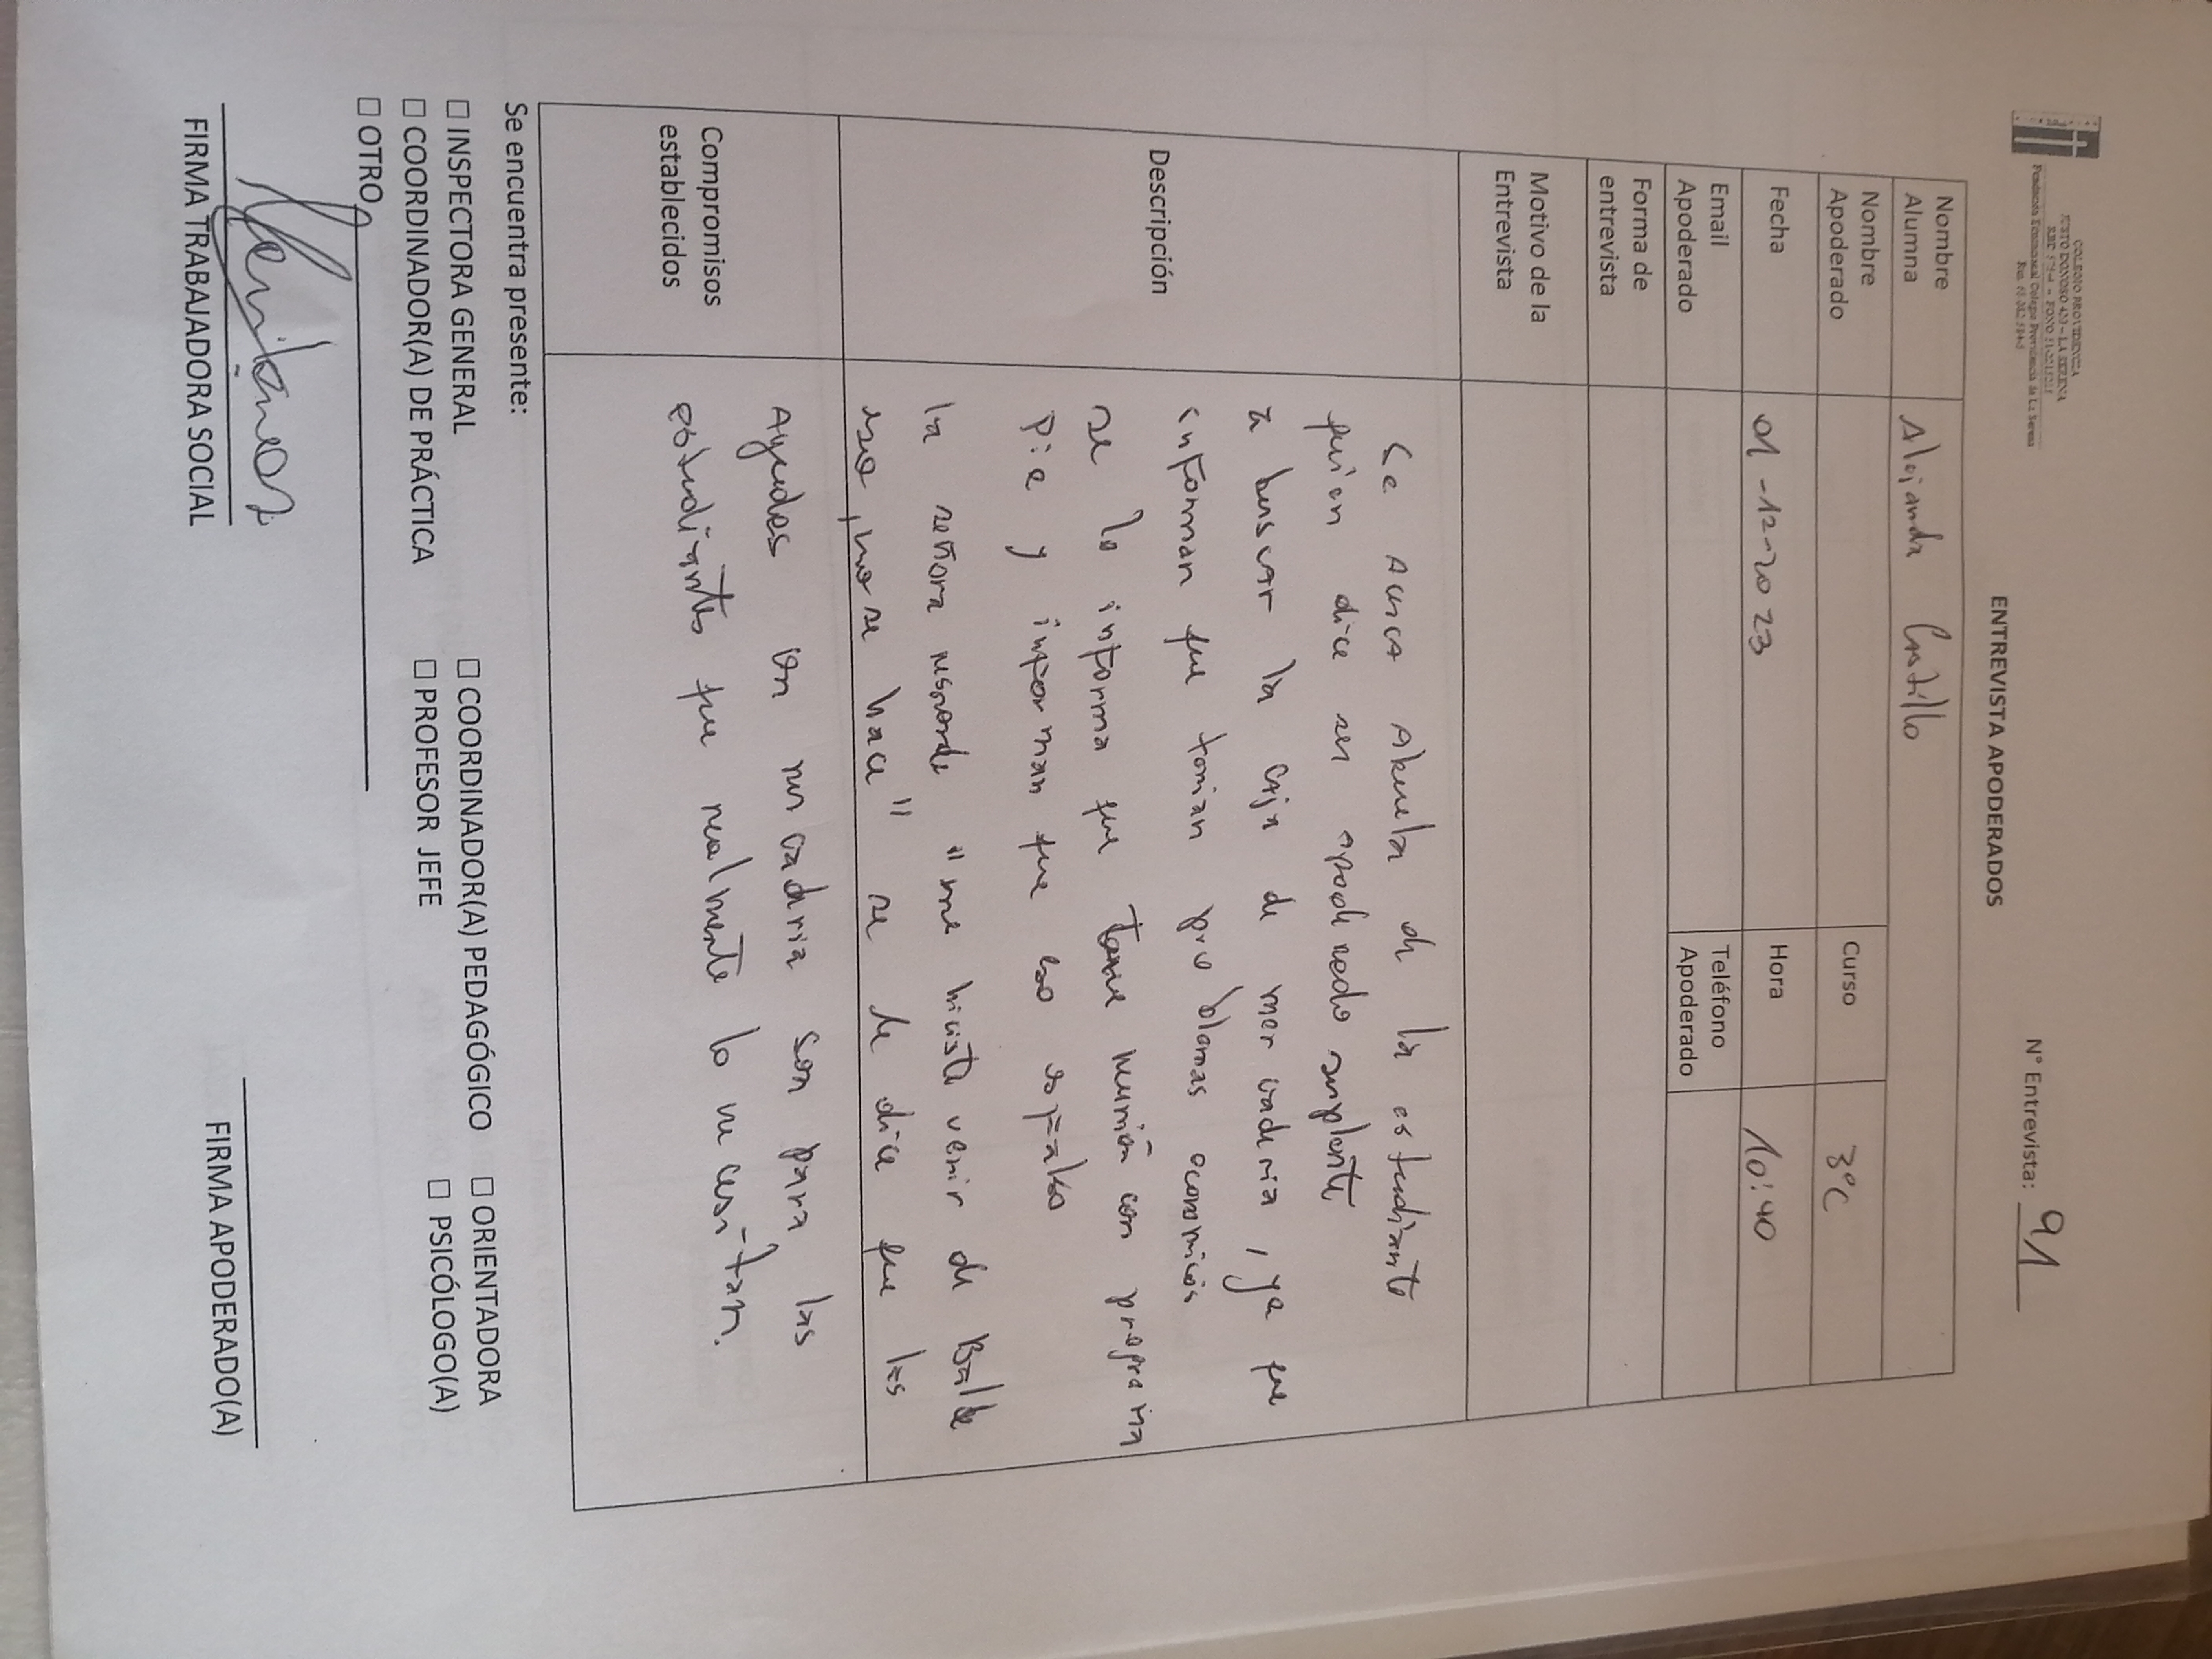 COLEGIO PROVIDENCIA
JUSTO DONOSO 420 – LA SERENA
Fundación Educacional Colegio Providencia de La Serena
ENTREVISTA APODERADOS
N° Entrevista: 91
Nombre Alumna Alejandra Castillo
Nombre Apoderado Curso 3°C
Fecha 01-12-2023 Hora 10:40
Email Apoderado Teléfono Apoderado
Forma de entrevista
Motivo de la Entrevista
Descripción
Se acerca Abuela de la estudiante
quien dice ser apoderado suplente
a buscar la caja de mercaderia, ya que
informan que tenian problemas economicos
se le informa que tiene reunión con programa
Pie y informan que eso es falso
la señora responde "me hiciste venir de Balde
eso, no se hace" se le dice que las
Compromisos establecidos
Ayudas en mercaderia son para las
estudiantes que realmente lo necesitan.
Se encuentra presente:
☐ INSPECTORA GENERAL ☐ COORDINADOR(A) PEDAGÓGICO ☐ ORIENTADORA
☐ COORDINADOR(A) DE PRÁCTICA ☐ PROFESOR JEFE ☐ PSICÓLOGO(A)
☐ OTRO
FIRMA TRABAJADORA SOCIAL FIRMA APODERADO(A)